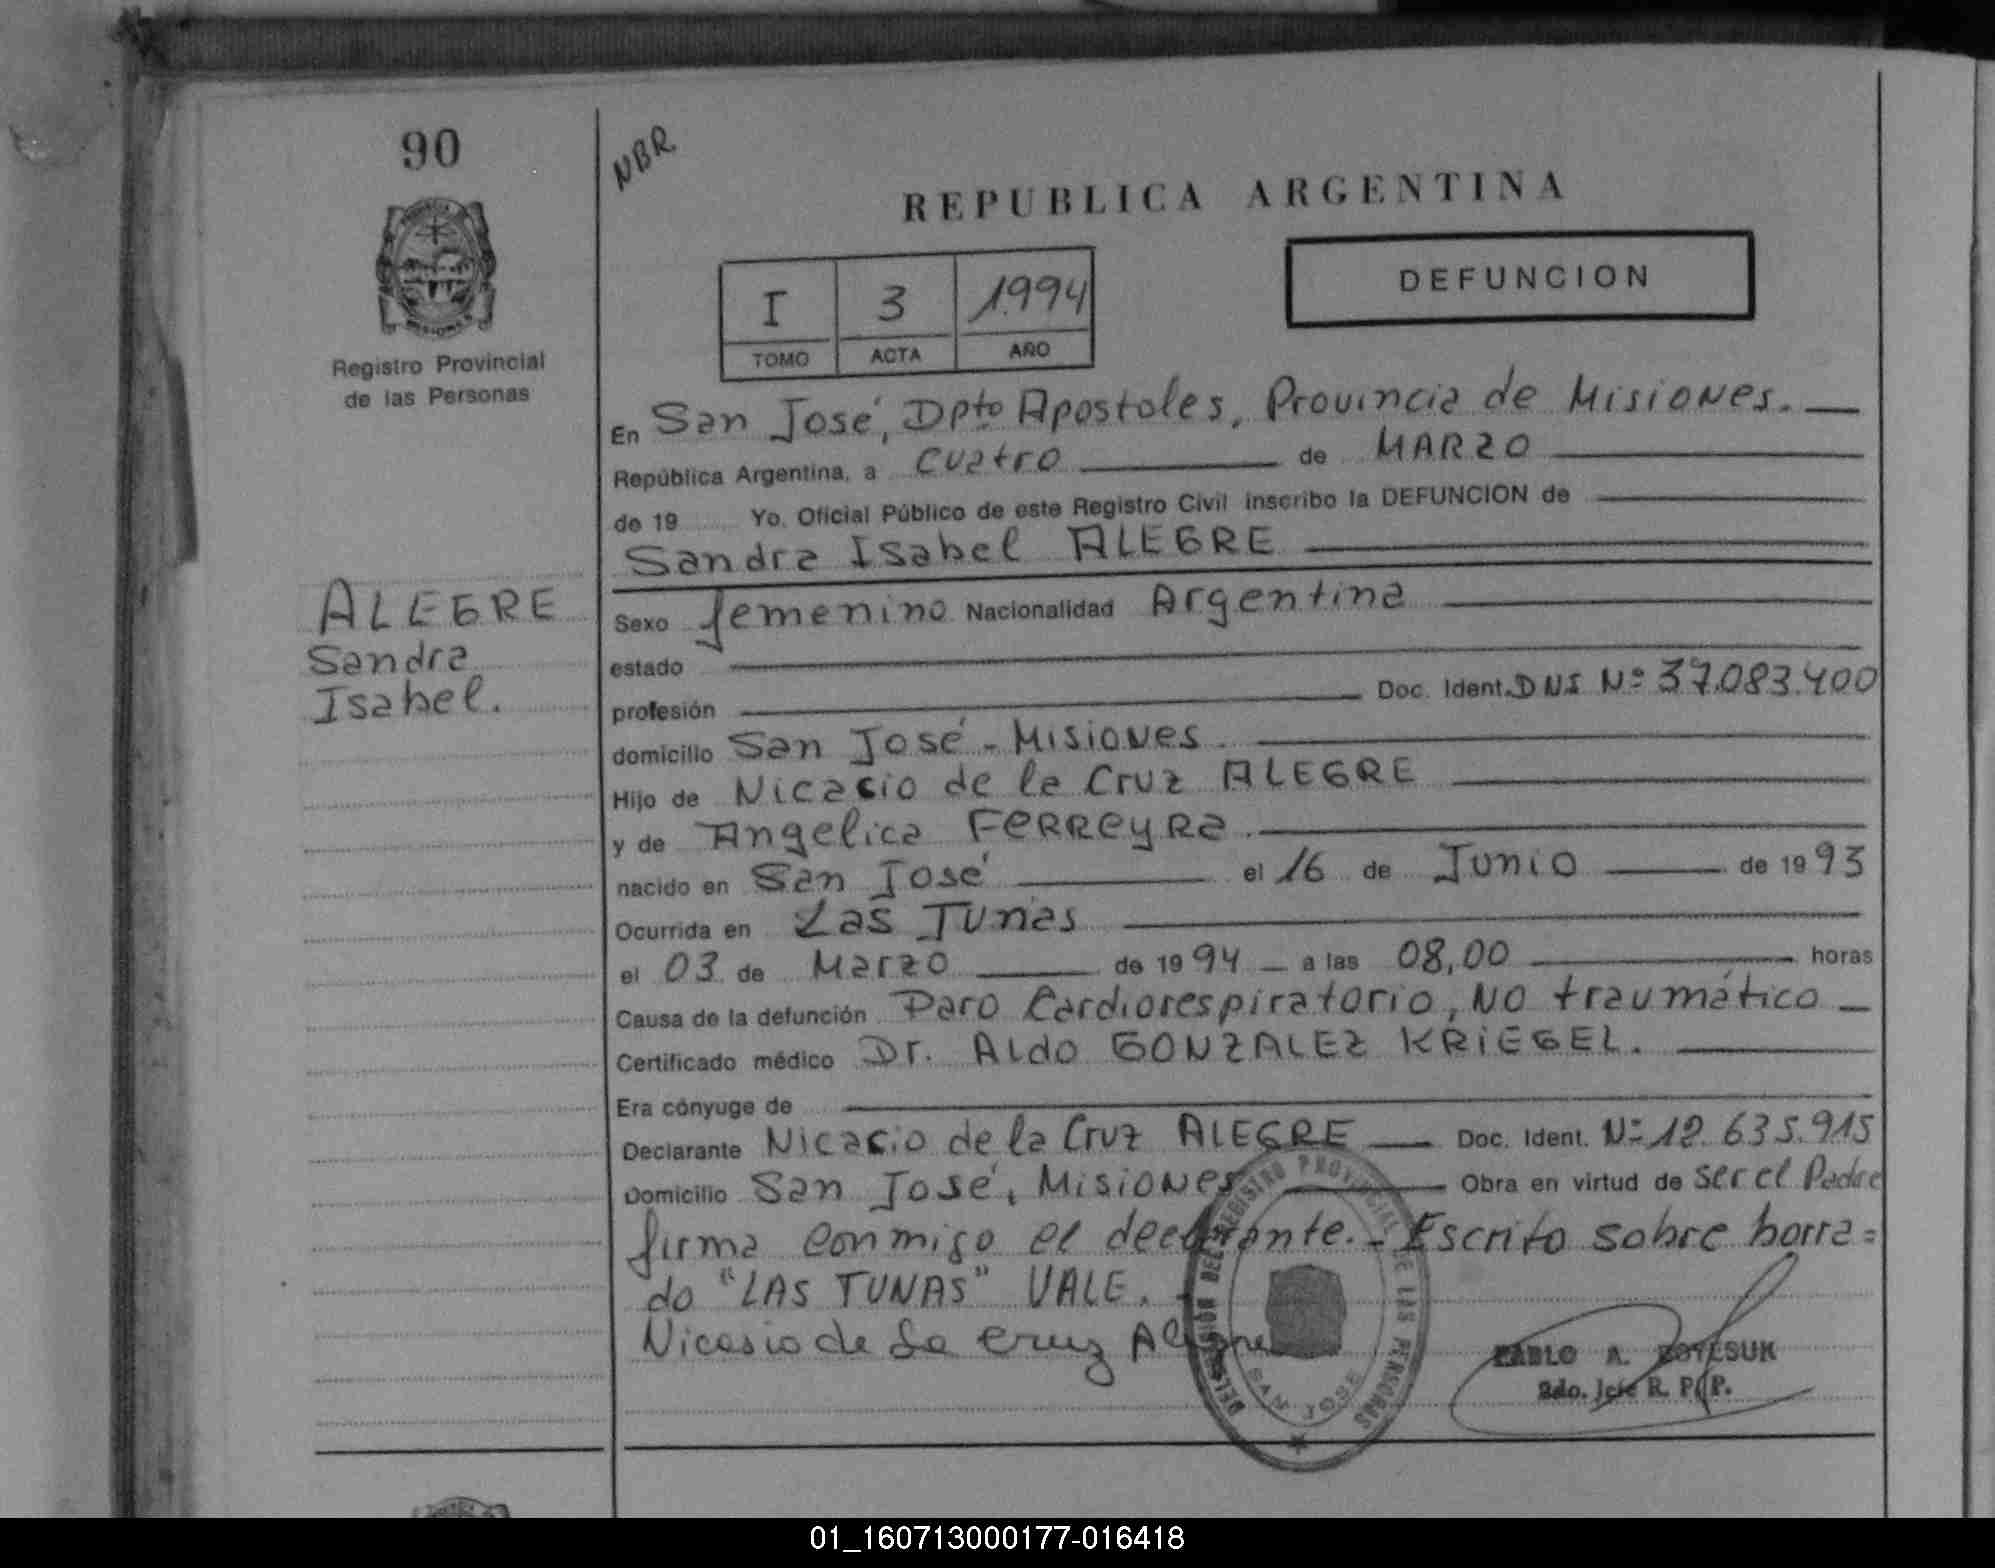 90
NBR
REPUBLICA ARGENTINA
DEFUNCION
I 3 1994
TOMO ACTA AÑO
Registro Provincial
de las Personas
En San José, Dpto Apostoles, Provincia de Misiones.
República Argentina, a cuatro de MARZO
de 19 Yo, Oficial Público de este Registro Civil inscribo la DEFUNCION de
Sandra Isabel ALEGRE
ALEGRE
Sandra
Isabel.
Sexo femenino Nacionalidad Argentina
estado
profesión Doc. Ident. DNI Nº 37.083.400
domicilio San José - Misiones
Hijo de Nicasio de la Cruz ALEGRE
y de Angelica FERREYRA.
nacido en San José el 16 de Junio de 1993
Ocurrida en Las Tunas
el 03 de Marzo de 1994 a las 08,00 horas
Causa de la defunción Paro Cardiorespiratorio, NO traumático
Certificado médico Dr. Aldo GONZALEZ KRIEGEL.
Era cónyuge de
Declarante Nicasio de la Cruz ALEGRE Doc. Ident. Nº 12.635.915
Domicilio San José, Misiones Obra en virtud de ser el Padre
firma conmigo el declarante. - Escrito sobre borra=
do "LAS TUNAS" VALE.
Nicasio de la Cruz Alegre
DELEGACION DEL REGISTRO PROVINCIAL DE LAS PERSONAS
SAN JOSE
PABLO A.
2do. Jefe R. P. P.
01_160713000177-016418